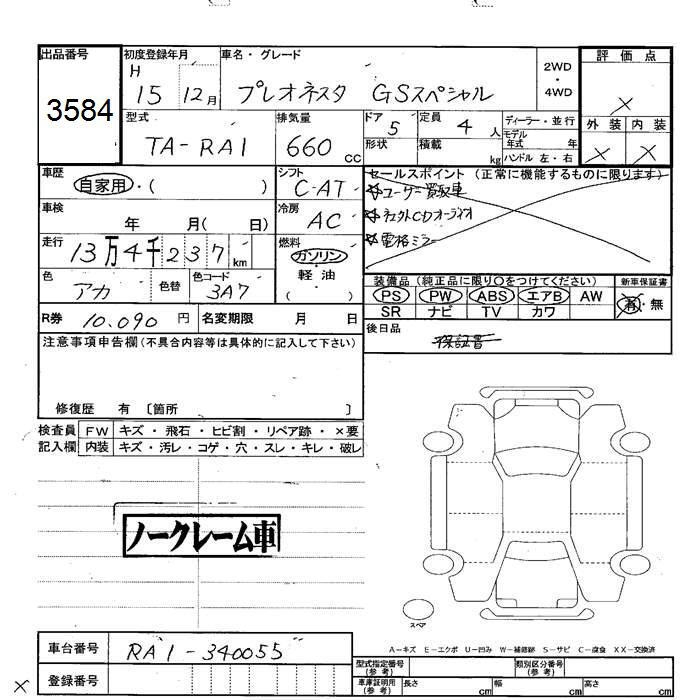 出品番号
3584
初度登録年月
H
15 12月
車名・グレード
プレオネスタ GSスペシャル
2WD
・
4WD
評価点
×
外装 内装
× ×
型式
TA-RA1
排気量
660 cc
ドア 5
定員 4 人
形状
積載 kg
ディーラー・並行
モデル
年式 年
ハンドル 左・右
車歴
自家用・( )
シフト
C-AT
セールスポイント (正常に機能するものに限ります)
☆ユーザー買取車
☆社外CDオーディオ
☆電格ミラー
車検
年 月( 日)
冷房
AC
走行
13万4千237km
燃料
ガソリン
・
軽油
( )
色
アカ
色替
色コード
3A7
装備品 (純正品に限り〇をつけてください)
PS PW ABS エアB AW
SR ナビ TV カワ
新車保証書
有・無
R券 10.090 円
名変期限 月 日
後日品
保証書
注意事項申告欄(不具合内容等は具体的に記入して下さい)
修復歴 有 〔箇所 〕
検査員
記入欄
FW キズ・飛石・ヒビ割・リペア跡・×要
内装 キズ・汚レ・コゲ・穴・スレ・キレ・破レ
ノークレーム車
スペア
A-キズ E-エクボ U-凹み W-補修跡 S-サビ C-腐食 XX-交換済
車台番号
RA1-340055
登録番号
×
型式指定番号
(参考)
類別区分番号
(参考)
車庫証明用
(参考)
長さ cm
幅 cm
高さ cm